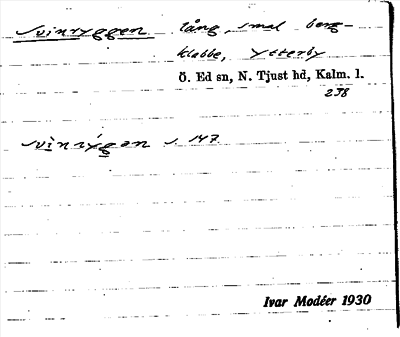 Svinryggen lång, smal berg-
klabbe, Ytterby
Ö. Ed sn, N. Tjust hd, Kalm. l.
238
svinrýgən s. 147
Ivar Modéer 1930